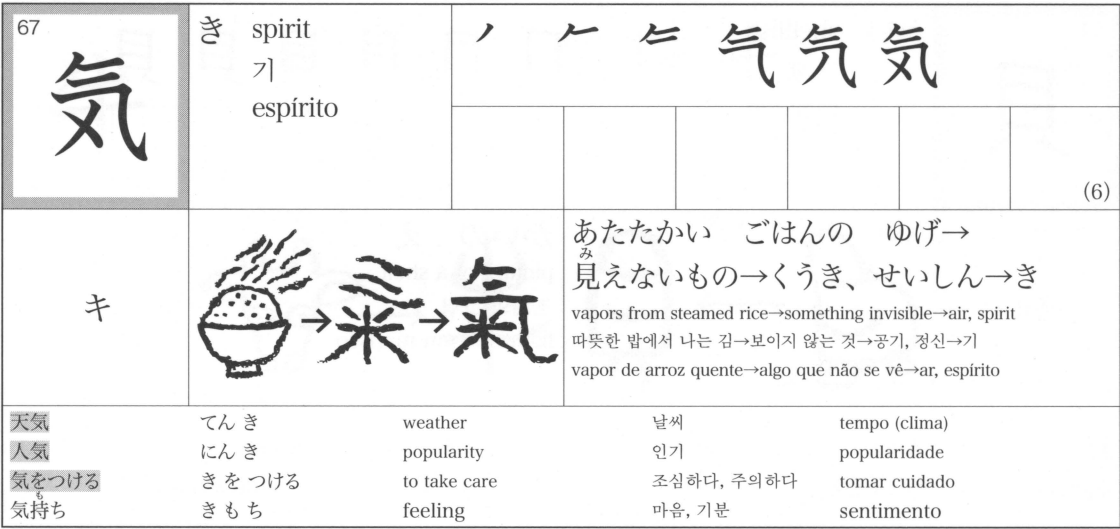 67
気
き spirit
기
espírito
ノ 𠂉 气 気
(6)
キ
→ 米 → 氣
あたたかい ごはんの ゆげ→
見えないもの→くうき、せいしん→き
み
vapors from steamed rice→something invisible→air, spirit
따뜻한 밥에서 나는 김→보이지 않는 것→공기, 정신→기
vapor de arroz quente→algo que não se vê→ar, espírito
天気 てん き weather 날씨 tempo (clima)
人気 にん き popularity 인기 popularidade
気をつける き を つける to take care 조심하다, 주의하다 tomar cuidado
気持ち き も ち feeling 마음, 기분 sentimento
も